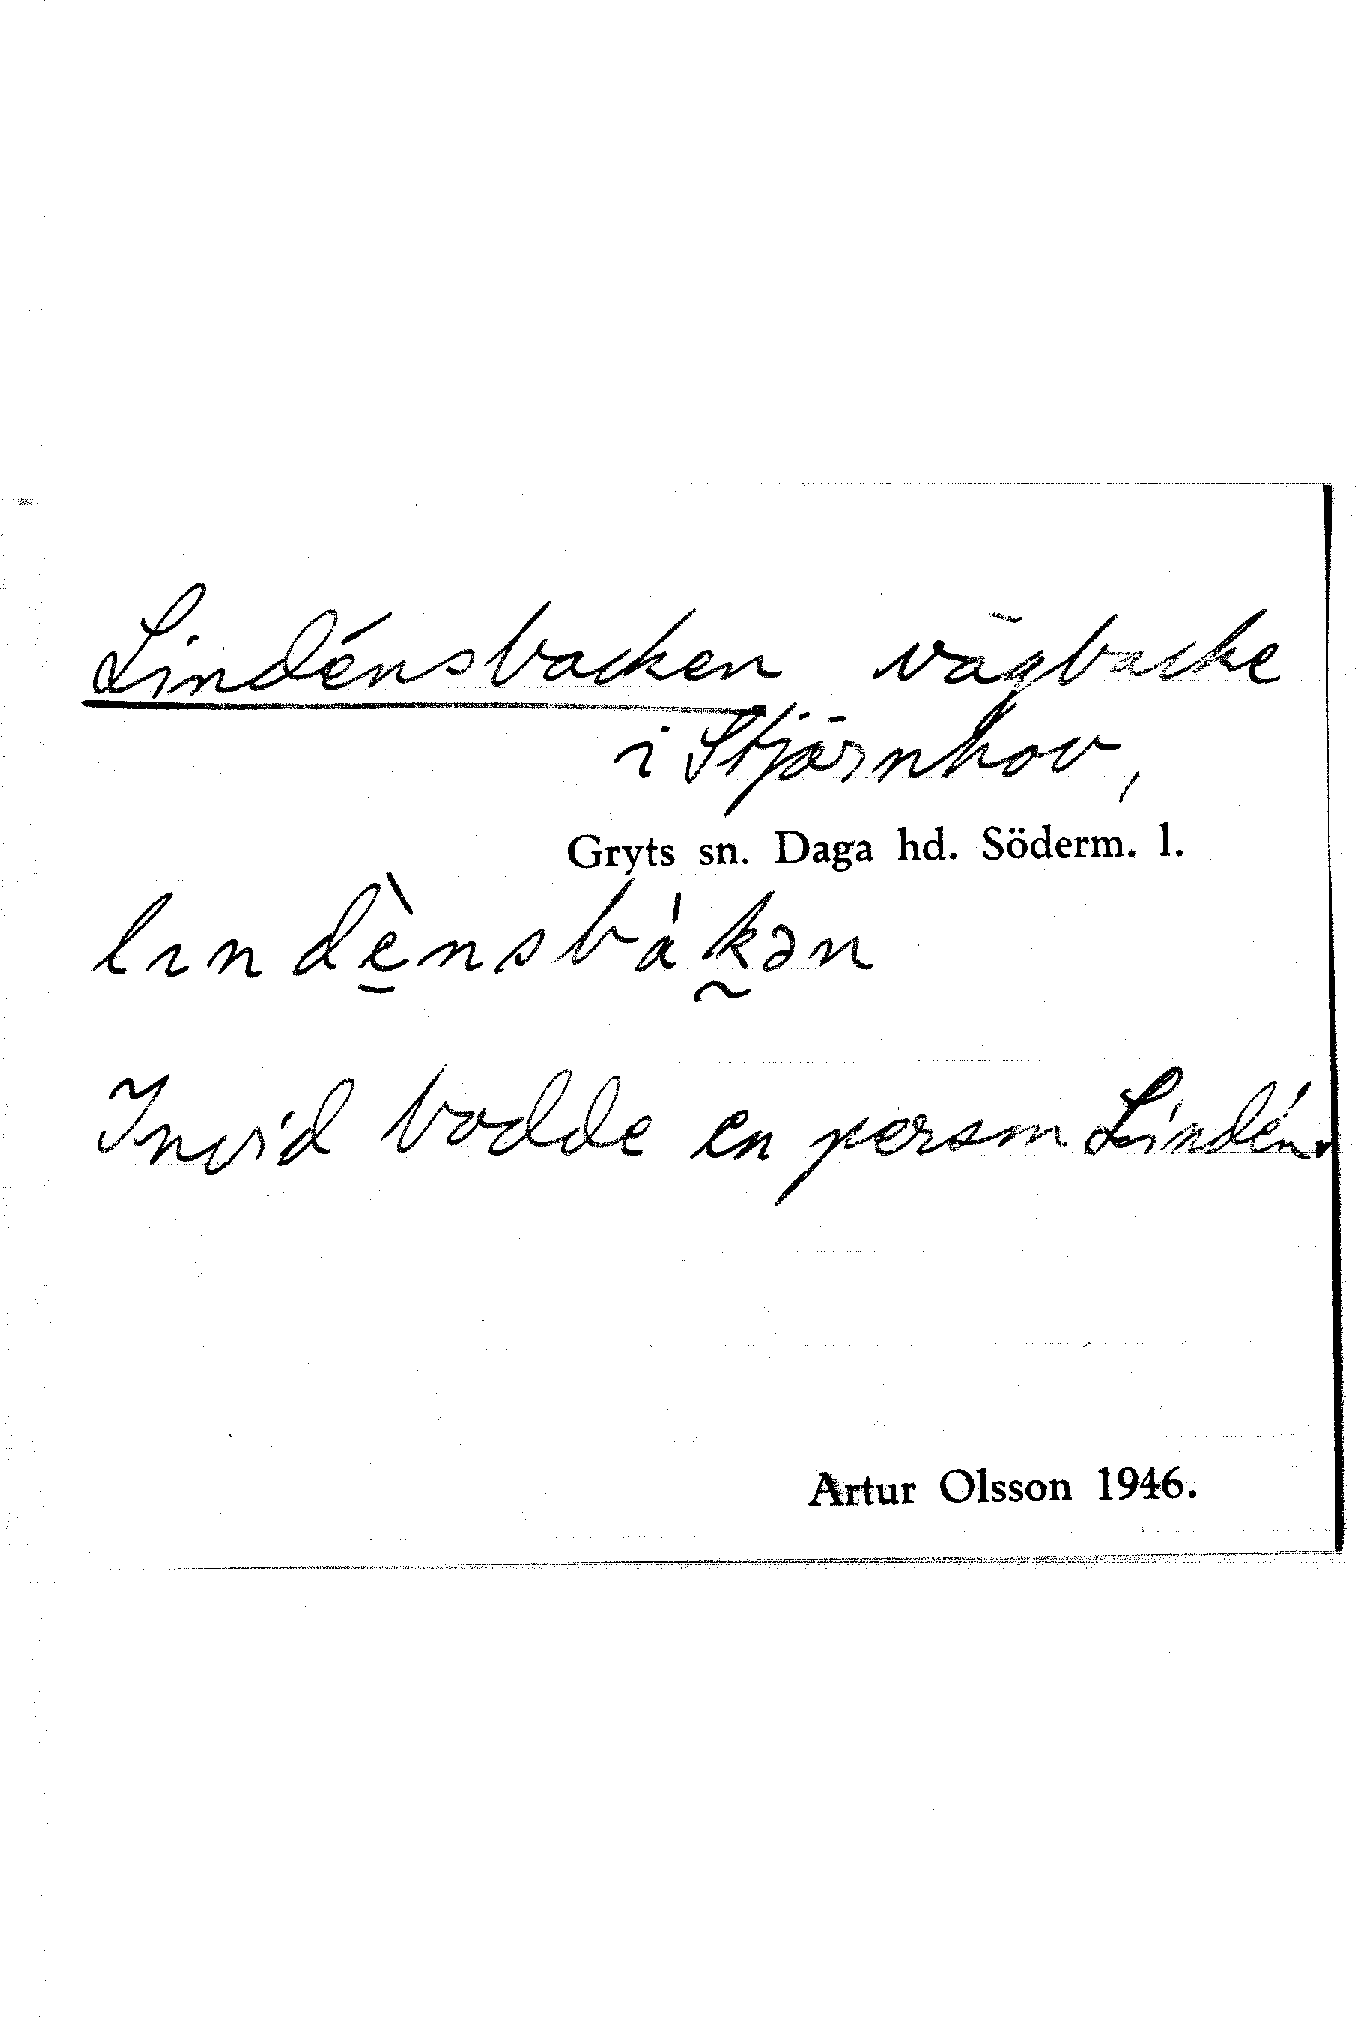 Lindénsbacken vägbacke
i Stjärnhov,
Gryts sn. Daga hd. Söderm. l.
lındè̱nsbák̰ən
Invid bodde en person Lindén.
Artur Olsson 1946.